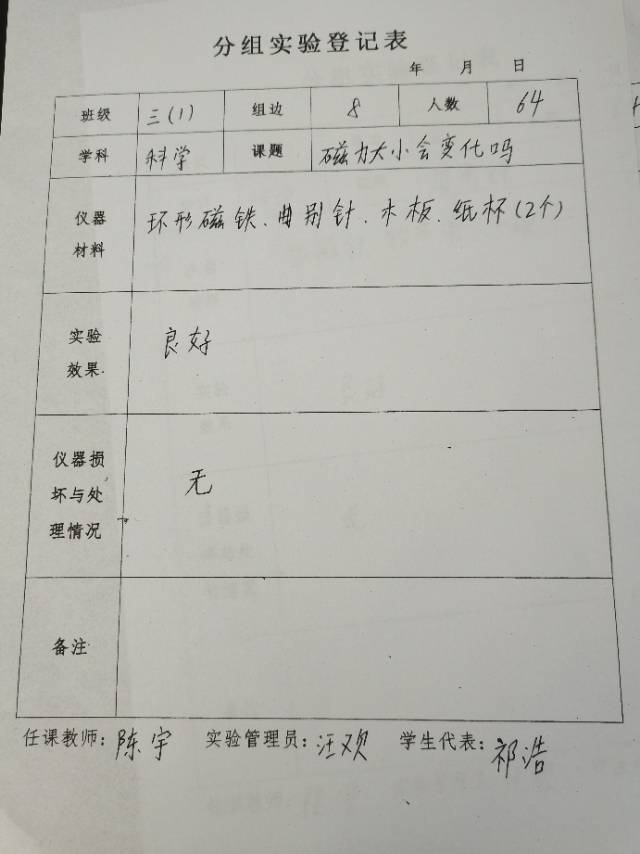 分组实验登记表
年 月 日
班级 三(1) 组边 8 人数 64
学科 科学 课题 磁力大小会变化吗
仪器材料 环形磁铁、曲别针、木板、纸杯(2个)
实验效果 良好
仪器损坏与处理情况 无
备注
任课教师：陈宇 实验管理员：汪欢 学生代表：祁浩